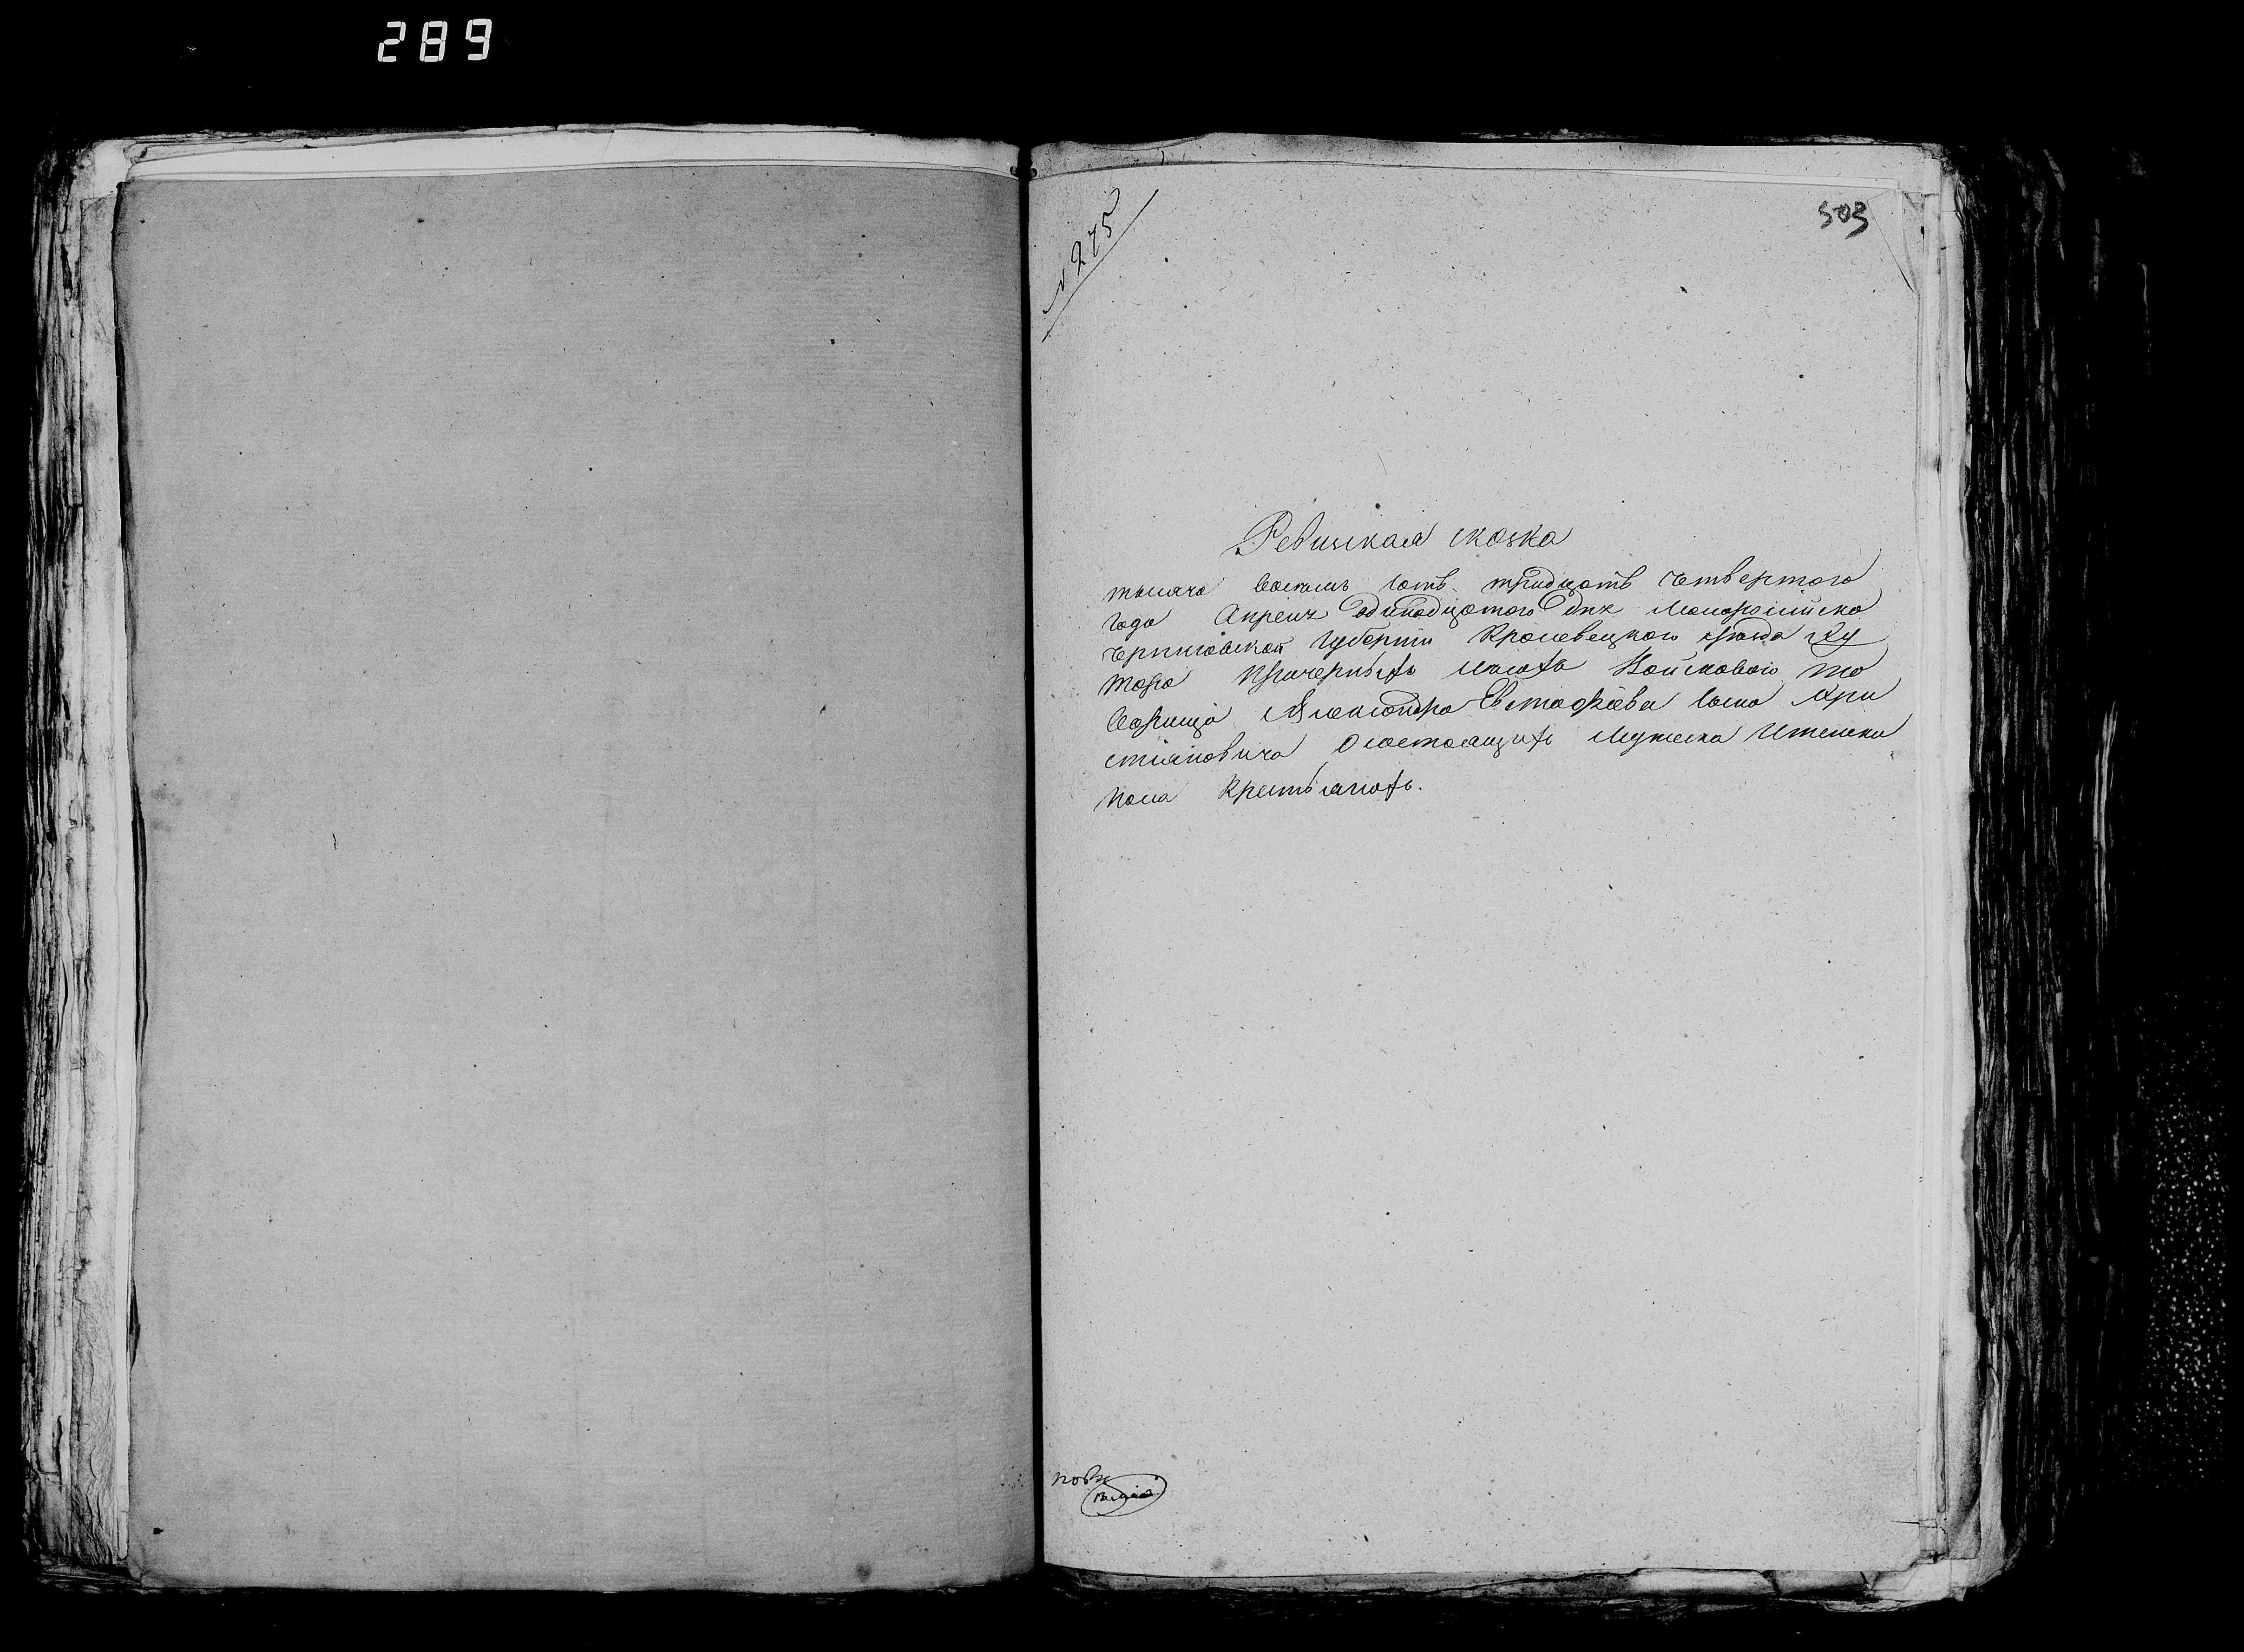 289
№ 275
503
Ревизская сказка
тысяча восемь сотъ тридцать четвертого
года Апреля одинадцатого дня Малороссійско
Черниговской губерніи Кролевецкого уезда Ху
тора сыновъ Войскового то
варища Александра Евстафіева сына Хри
стіановича о состоящихъ мужеска и женска
пола крестьянахъ.